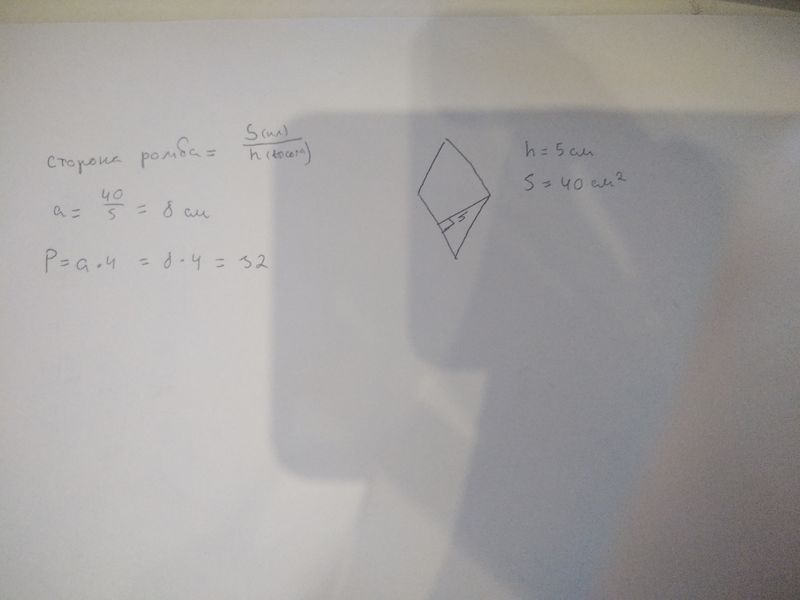 сторона ромба = S(пл) / h(высота)
a = 40/5 = 8 см
P = a · 4 = 8 · 4 = 32
5
h = 5 см
S = 40 см²